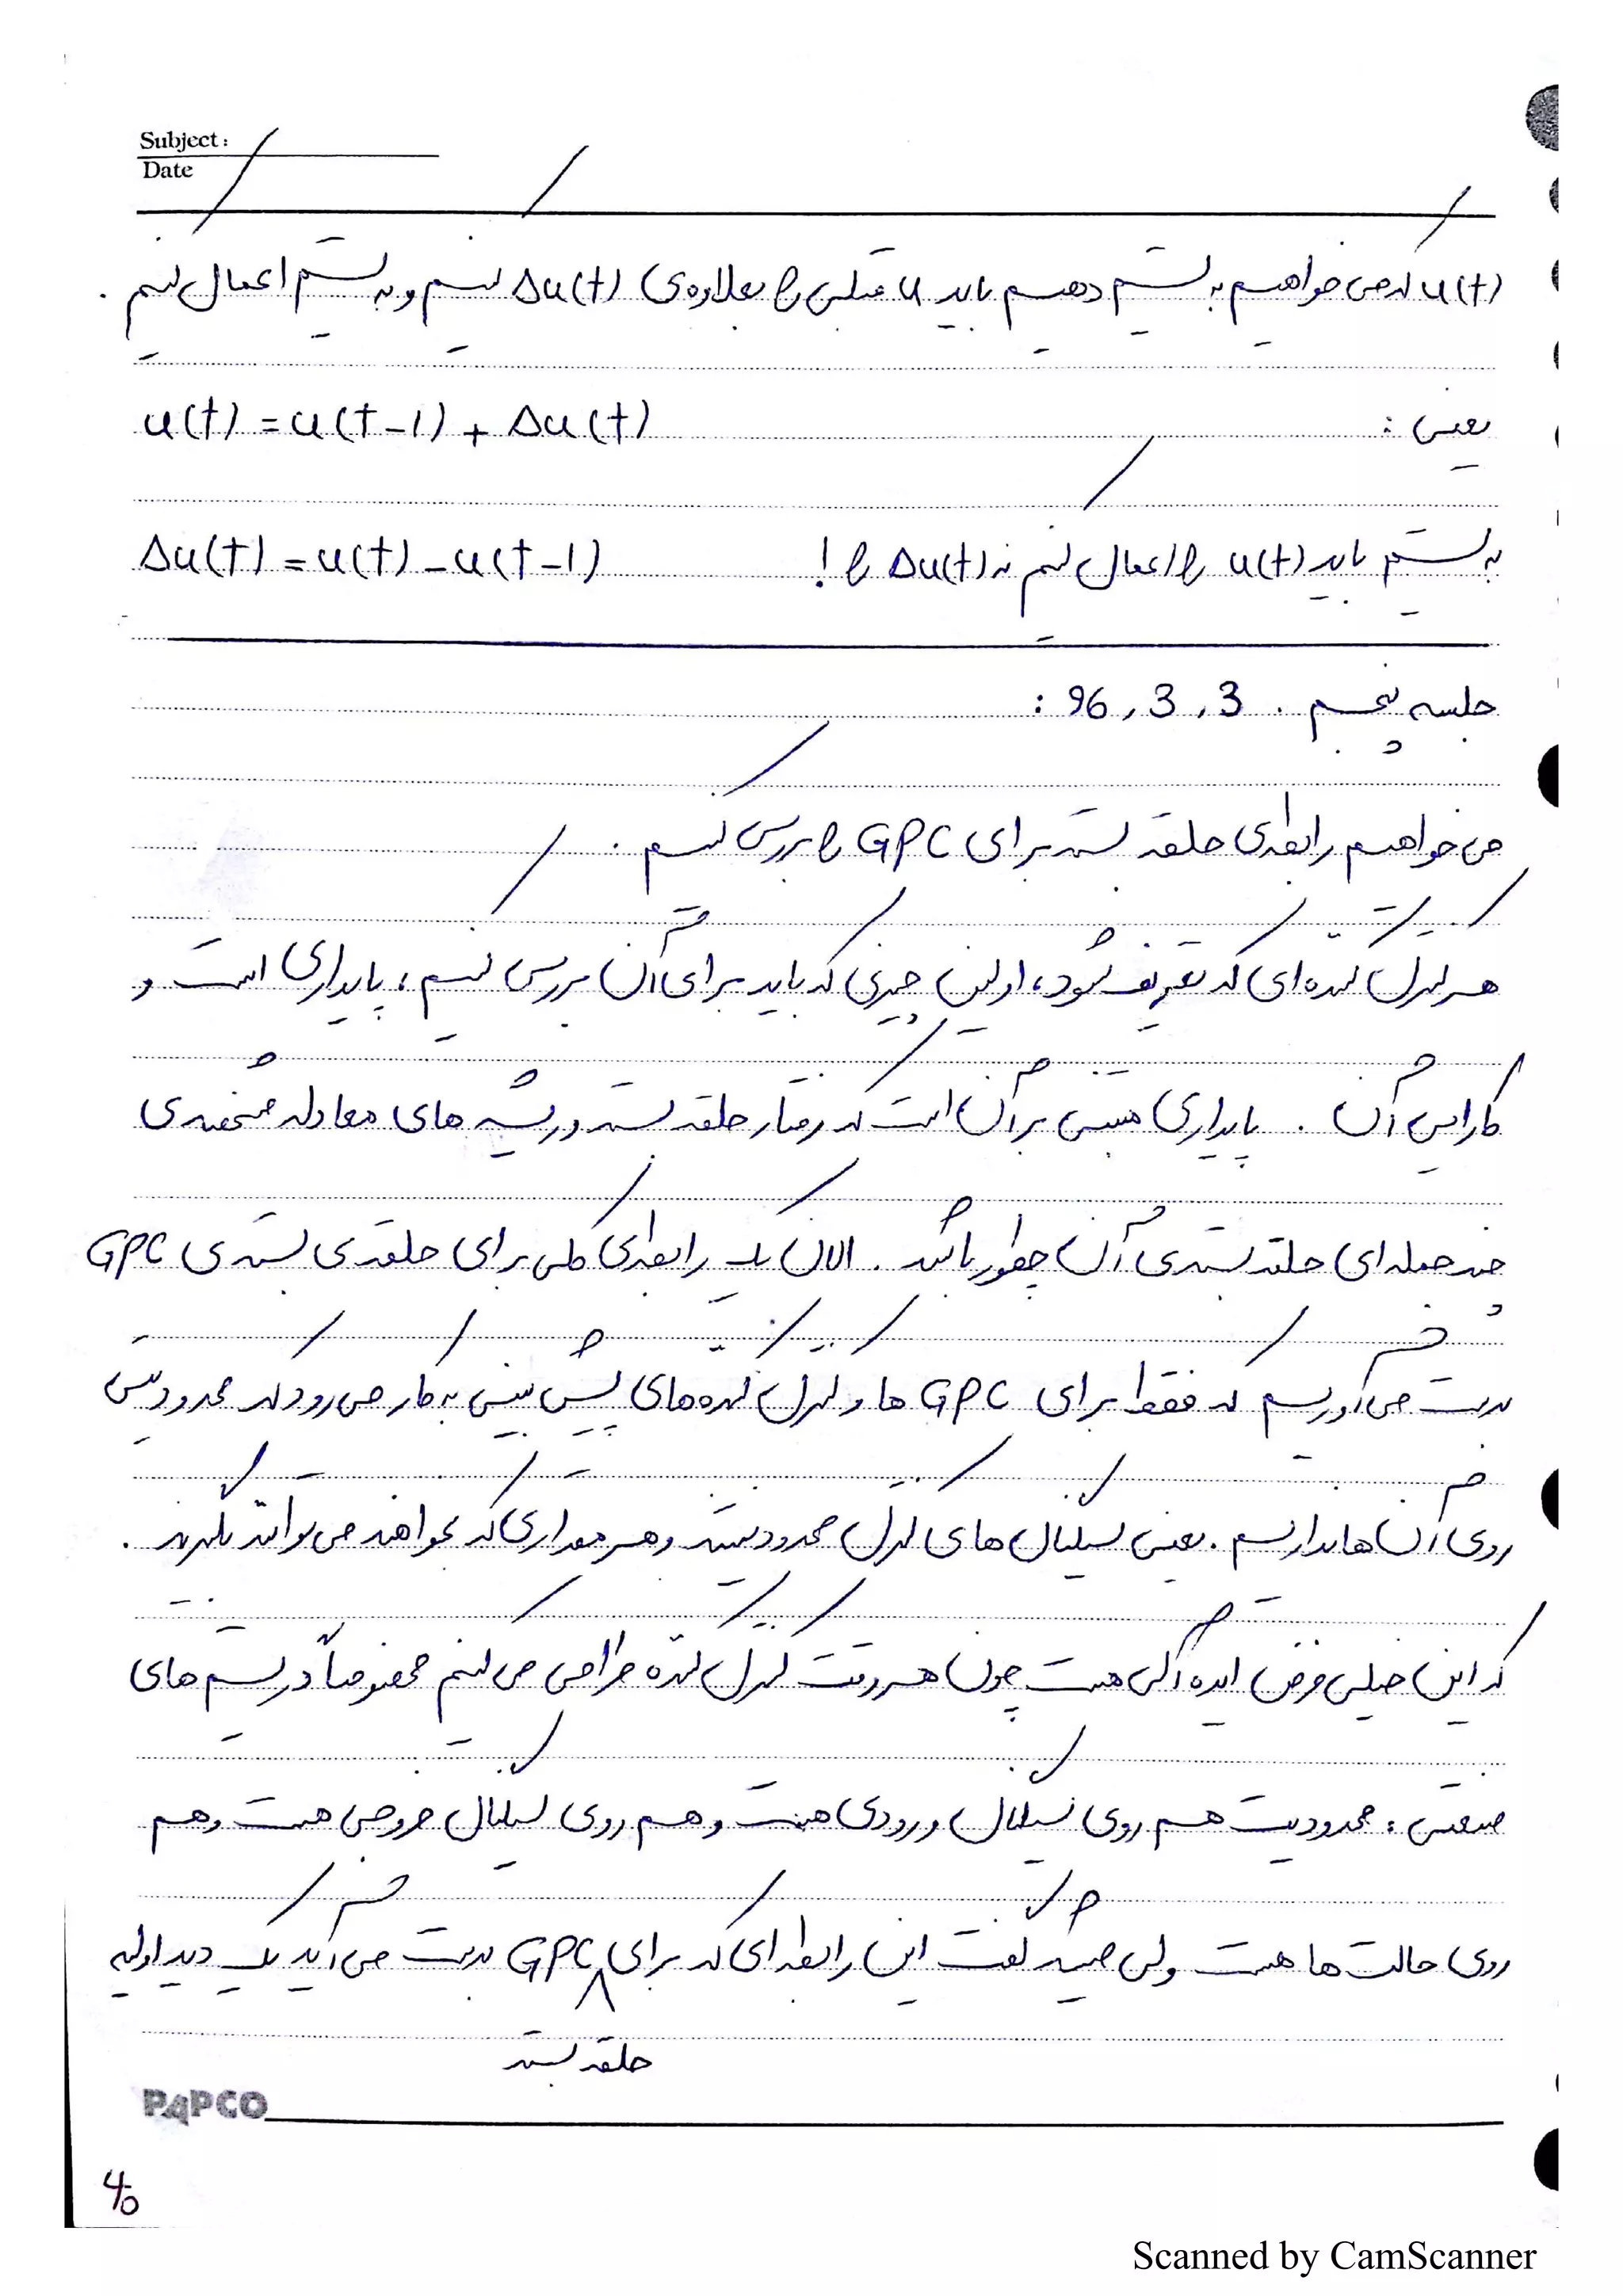 Subject:
Date
u(t) که می خواهیم به سیستم دهیم باید u قبلی را بعلاوه‌ی Δu(t) کنیم و به سیستم اعمال کنیم .
یعنی : u(t) = u(t-1) + Δu(t)
به سیستم باید u(t) را اعمال کنیم نه Δu(t) را ! Δu(t) = u(t) - u(t-1)
جلسه پنجم . 3 , 3 , 96 :
می خواهیم رابطه‌ی حلقه بسته برای GPC را بررسی کنیم .
هر کنترل کننده ای که تعریف شود ، اولین چیزی که باید برای آن بررسی کنیم ، پایداری است و
کارایی آن . پایداری مبتنی بر آن است که رفتار حلقه بسته و ریشه های معادله مشخصه‌ی
چند جمله ای حلقه بسته‌ی آن چطور باشد . الان یک رابطه‌ی کلی برای حلقه‌ی بسته‌ی GPC
بدست می آوریم که فقط برای GPC ها و کنترل کننده های پیش بینی به کار می رود که محدودیتی
روی آن ها نداریم . یعنی سیگنال های کنترل محدود نیستند و هر مقداری که بخواهند می توانند بگیرند .
که این خیلی فرض ایده آلی هست چون هر وقت کنترل کننده طراحی می کنیم مخصوصاً در سیستم های
صنعتی ، محدودیت هم روی سیگنال ورودی هست و هم روی سیگنال خروجی هست و هم
روی حالت ها هست ولی میشه گفت این رابطه ای که برای GPC بدست می آید یک دید اولیه
حلقه بسته
PAPCO
40
Scanned by CamScanner